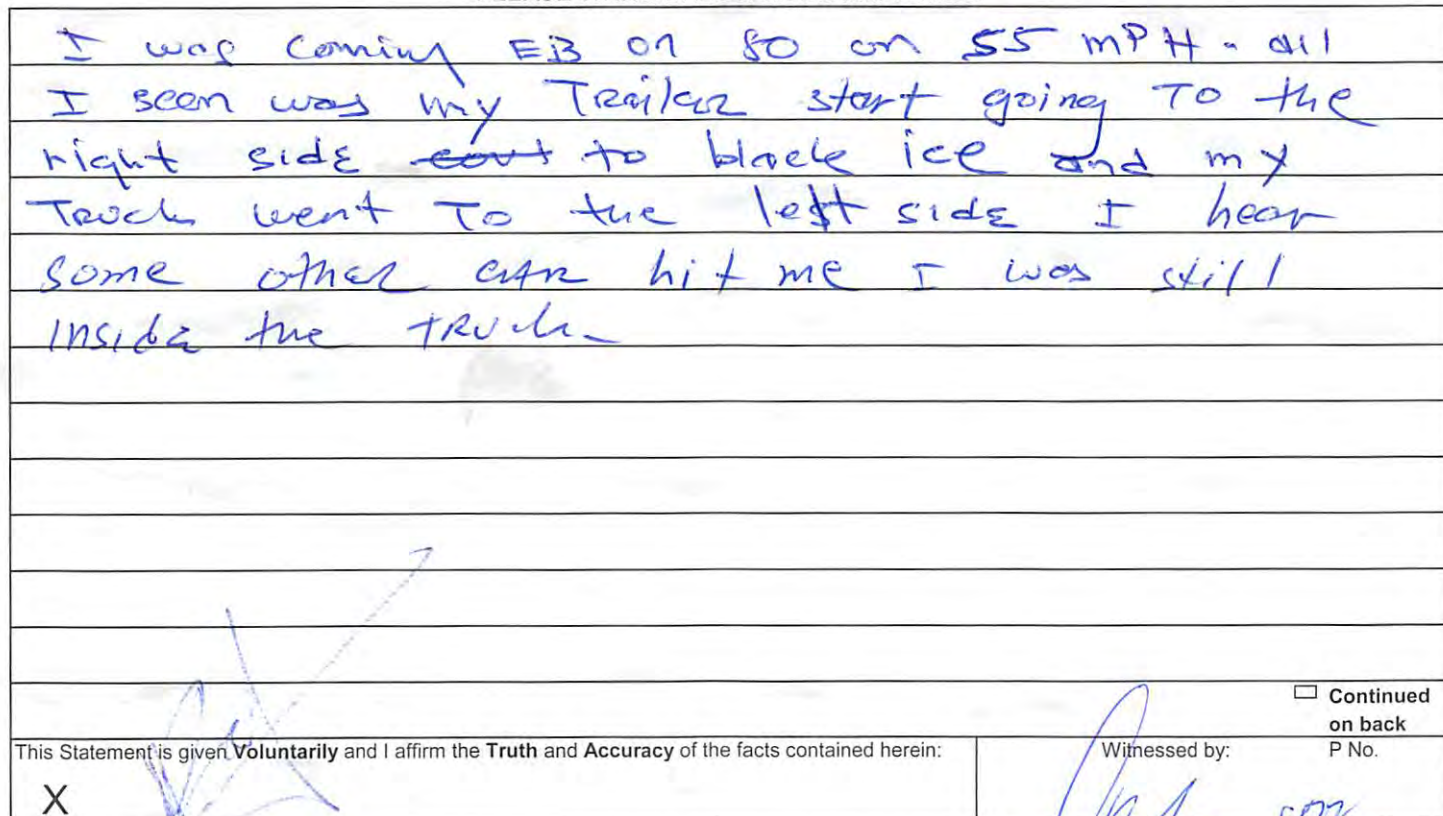 I was coming EB on 80 on 55 MPH - all
I seen was my Trailer start going To the
right side to black ice and my
Truck went To the left side I hear
some other car hit me I was still
inside the truck
Continued
on back
This Statement is given Voluntarily and I affirm the Truth and Accuracy of the facts contained herein:
Witnessed by:
P No.
X